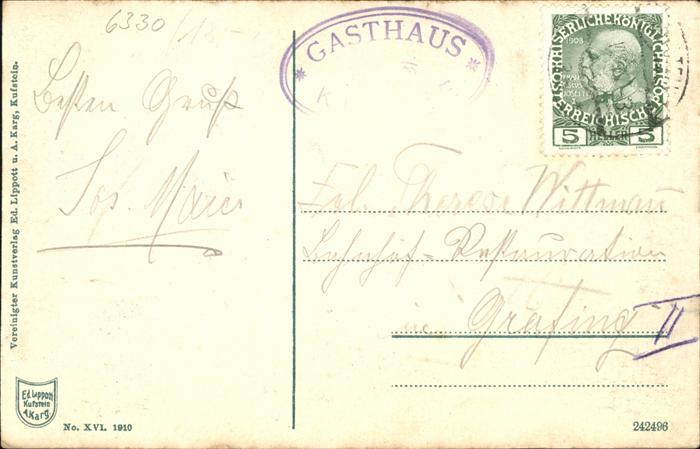 6330
Besten Gruß
Jos. Maier
GASTHAUS
K
1908
KAISERLICHE KÖNIGLICHE
ÖSTERREICHISCHE POST
5 HELLER 5
Frl. Therese Wittman
Bahnhof-Restauration
in Grafing
II
Vereinigter Kunstverlag Ed. Lippott u. A. Karg, Kufstein.
Ed. Lippott
Kufstein
A Karg
No. XVI. 1910
242496